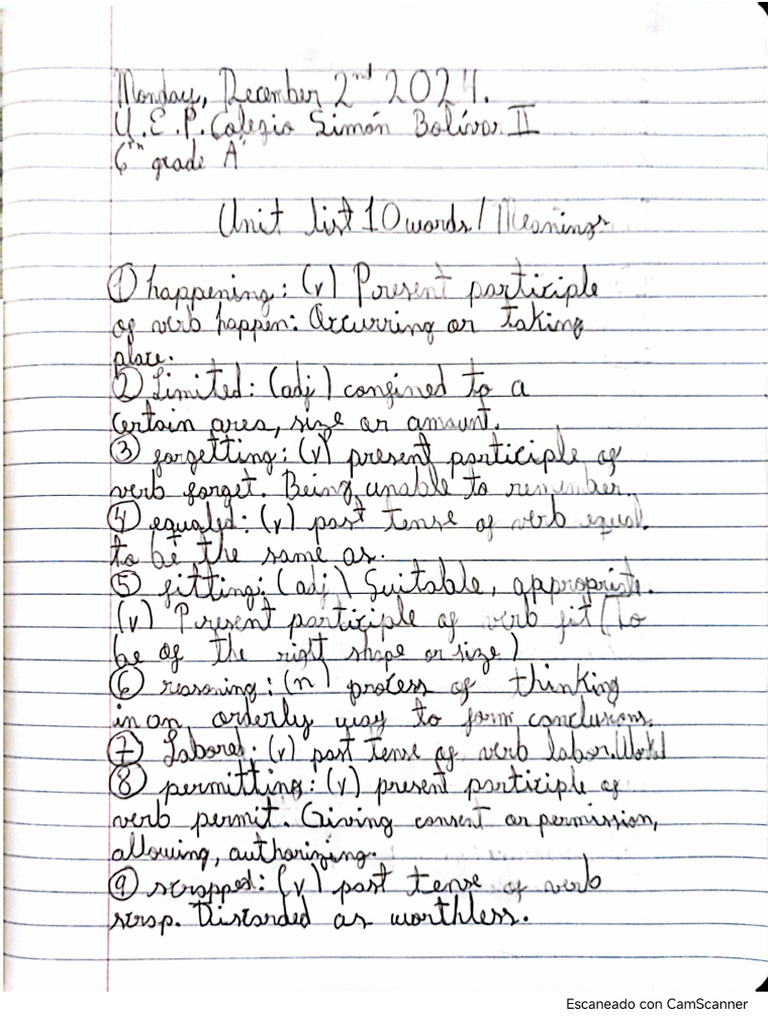 Monday, December 2nd 2024.
U.E.P. Colegio Simón Bolívar II
6th grade "A"
Unit list 10 words/Meanings
① happening: (v) Present participle
of verb happen: Occurring or taking
place.
② Limited: (adj) confined to a
certain area, size or amount.
③ forgetting: (v) present participle of
verb forget. Being unable to remember.
④ equaled: (v) past tense of verb equal.
to be the same as.
⑤ fitting: (adj) Suitable, appropriate.
(v) Present participle of verb fit (to
be of the right shape or size)
⑥ reasoning: (n) process of thinking
in an orderly way to form conclusions.
⑦ Labored: (v) past tense of verb labor. Worked
⑧ permitting: (v) present participle of
verb permit. Giving consent or permission,
allowing, authorizing.
⑨ scrapped: (v) past tense of verb
scrap. Discarded as worthless.
Escaneado con CamScanner